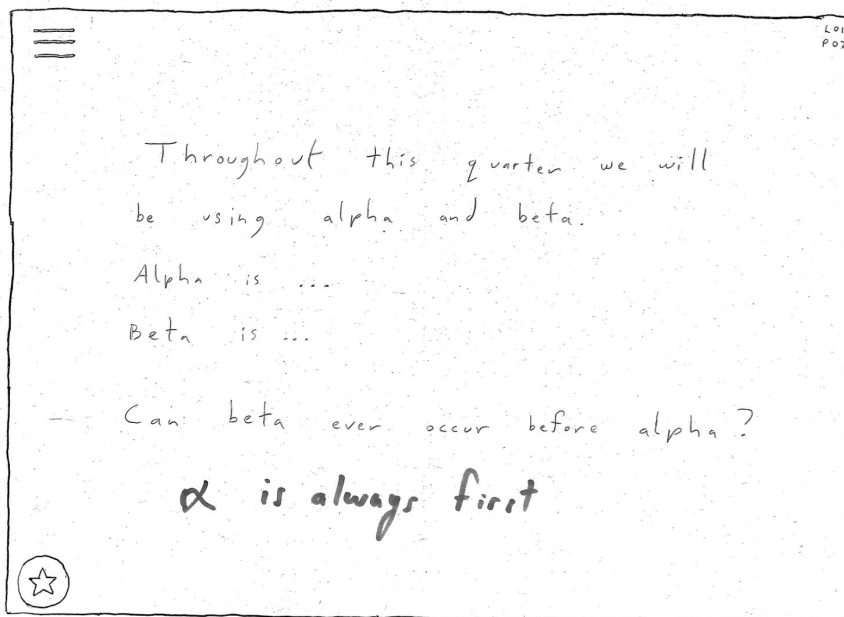 Throughout this quarter we will
be using alpha and beta.
Alpha is ...
Beta is ...
Can beta ever occur before alpha?
α is always first